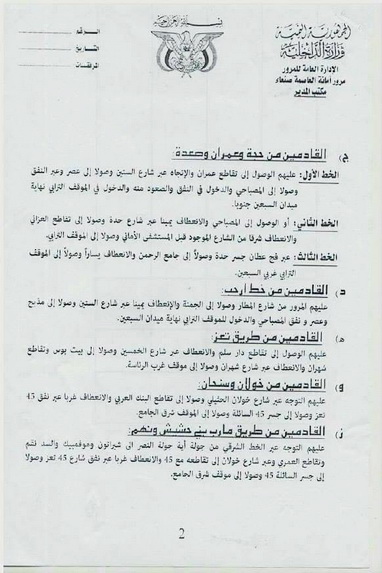 الجمهورية اليمنية
وزارة الداخلية
الإدارة العامة للمرور
مرور أمانة العاصمة صنعاء
مكتب المدير
الرقم
التاريخ
المرفقات
ج) القادمين من حجة وعمران وصعدة:
الخط الأول: عليهم الوصول إلى تقاطع عمران والإتجاه عبر شارع الستين وصولا إلى عصر وعبر النفق
وصولا إلى المصباحي والدخول في النفق والصعود منه والدخول في الموقف الترابي نهاية
ميدان السبعين جنوبا.
الخط الثاني: أو الوصول إلى المصباحي والانعطاف يمينا عبر شارع حدة وصولا إلى تقاطع العزاني
والانعطاف شرقا من الشارع الموجود قبل المستشفى الألماني وصولا إلى الموقف الترابي.
الخط الثالث: عبر فج عطان جسر حدة وصولاً إلى جامع الرحمن والانعطاف يساراً وصولاً إلى الموقف
الترابي غربي السبعين.
د) القادمين من خط أرحب:
عليهم المرور من شارع المطار وصولا إلى الجمنة والإنعطاف يمينا عبر شارع الستين وصولا إلى مذبح
وعصر و نفق المصباحي والدخول للموقف الترابي نهاية ميدان السبعين.
هـ) القادمين من طريق تعز:
عليهم الوصول إلى تقاطع دار سلم والانعطاف عبر شارع الخمسين وصولا إلى بيت بوس وتقاطع
شهران والانعطاف عبر شارع شهران وصولا إلى موقف غرب الرئاسة.
و) القادمين من خولان وسنحان:
عليهم التوجه عبر شارع خولان وصولا إلى تقاطع البنك العربي والانعطاف غربا عبر نفق 45
تعز وصولا إلى جسر 45 السائلة وصولا إلى الموقف شرق الجامع.
ز) القادمين من طريق مارب بني حشيش ونهم:
عليهم التوجه عبر الخط الشرقي من جولة آية جولة النصر الى شيراتون وموفمبيك والسد نقم
وتقاطع العمري وعبر شارع خولان إلى تقاطعه مع 45 والانعطاف غربا عبر نفق شارع 45 تعز وصولا
إلى جسر السائلة 45 وصولا إلى موقف شرق الجامع.
2